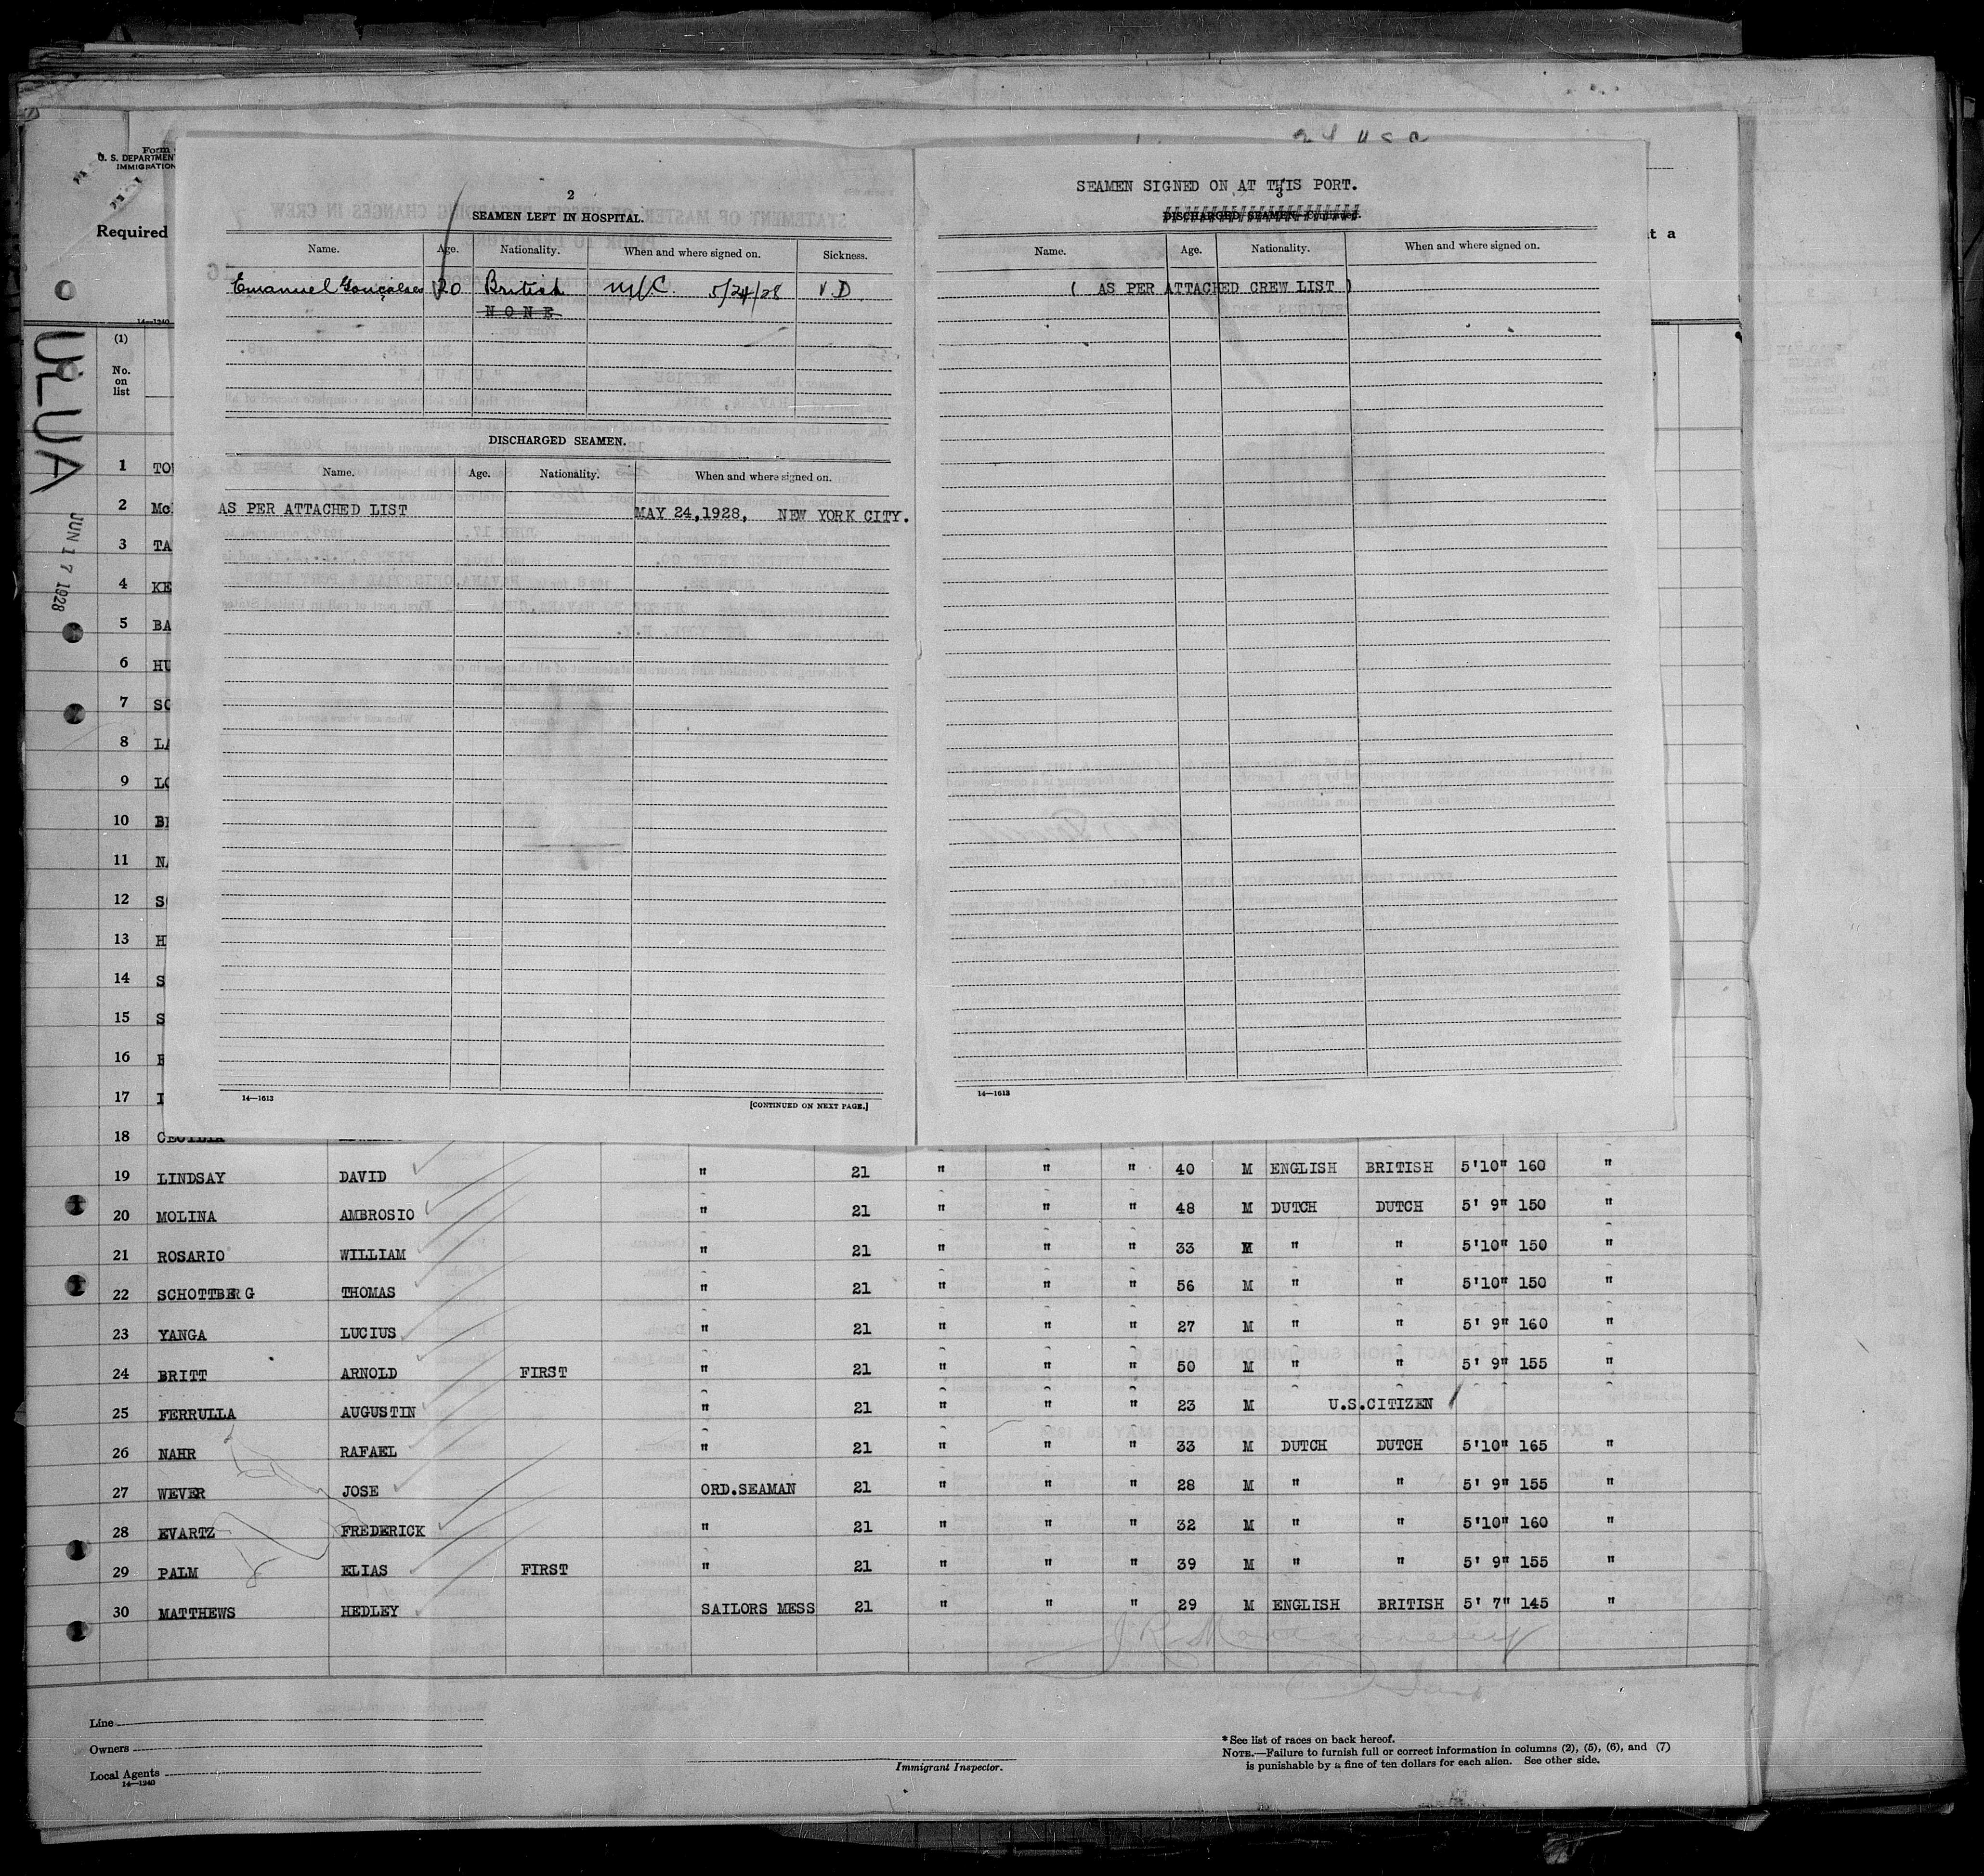 24 USC
Form
U. S. DEPARTMENT
IMMIGRATION
Required
t a
14—1240
ULUA
JUN 17 1928
(1)
No.
on
list
2
SEAMEN LEFT IN HOSPITAL.
Name. Age. Nationality. When and where signed on. Sickness.
Emanuel Gonçalses 20 British NYC. 5/24/28 VD
NONE
DISCHARGED SEAMEN.
Name. Age. Nationality. When and where signed on.
AS PER ATTACHED LIST MAY 24,1928, NEW YORK CITY.
14—1613
[CONTINUED ON NEXT PAGE.]
SEAMEN SIGNED ON AT THIS PORT.
3
DISCHARGED SEAMEN—Continued.
Name. Age. Nationality. When and where signed on.
( AS PER ATTACHED CREW LIST )
14—1613
1 TO
2 Mc
3 TA
4 KE
5 BA
6 HU
7 SC
8 LA
9 LO
10
11 NA
12 S
13 H
14 S
15 S
16
17
18
19 LINDSAY DAVID " 21 " " " 40 M ENGLISH BRITISH 5'10" 160 "
20 MOLINA AMBROSIO " 21 " " " 48 M DUTCH DUTCH 5' 9" 150 "
21 ROSARIO WILLIAM " 21 " " " 33 M " " 5'10" 150 "
22 SCHOTTBERG THOMAS " 21 " " " 56 M " " 5'10" 150 "
23 YANGA LUCIUS " 21 " " " 27 M " " 5' 9" 160 "
24 BRITT ARNOLD FIRST " 21 " " " 50 M " " 5' 9" 155 "
25 FERRULLA AUGUSTIN " 21 " " " 23 M U.S.CITIZEN
26 NAHR RAFAEL " 21 " " " 33 M DUTCH DUTCH 5'10" 165 "
27 WEVER JOSE ORD.SEAMAN 21 " " " 28 M " " 5' 9" 155 "
28 EVARTZ FREDERICK " 21 " " " 32 M " " 5'10" 160 "
29 PALM ELIAS FIRST " 21 " " " 39 M " " 5' 9" 155 "
30 MATTHEWS HEDLEY SAILORS MESS 21 " " " 29 M ENGLISH BRITISH 5' 7" 145 "
J R Montgomery
Line
Owners
Local Agents
14—1240
Immigrant Inspector.
*See list of races on back hereof.
NOTE.—Failure to furnish full or correct information in columns (2), (5), (6), and (7)
is punishable by a fine of ten dollars for each alien. See other side.